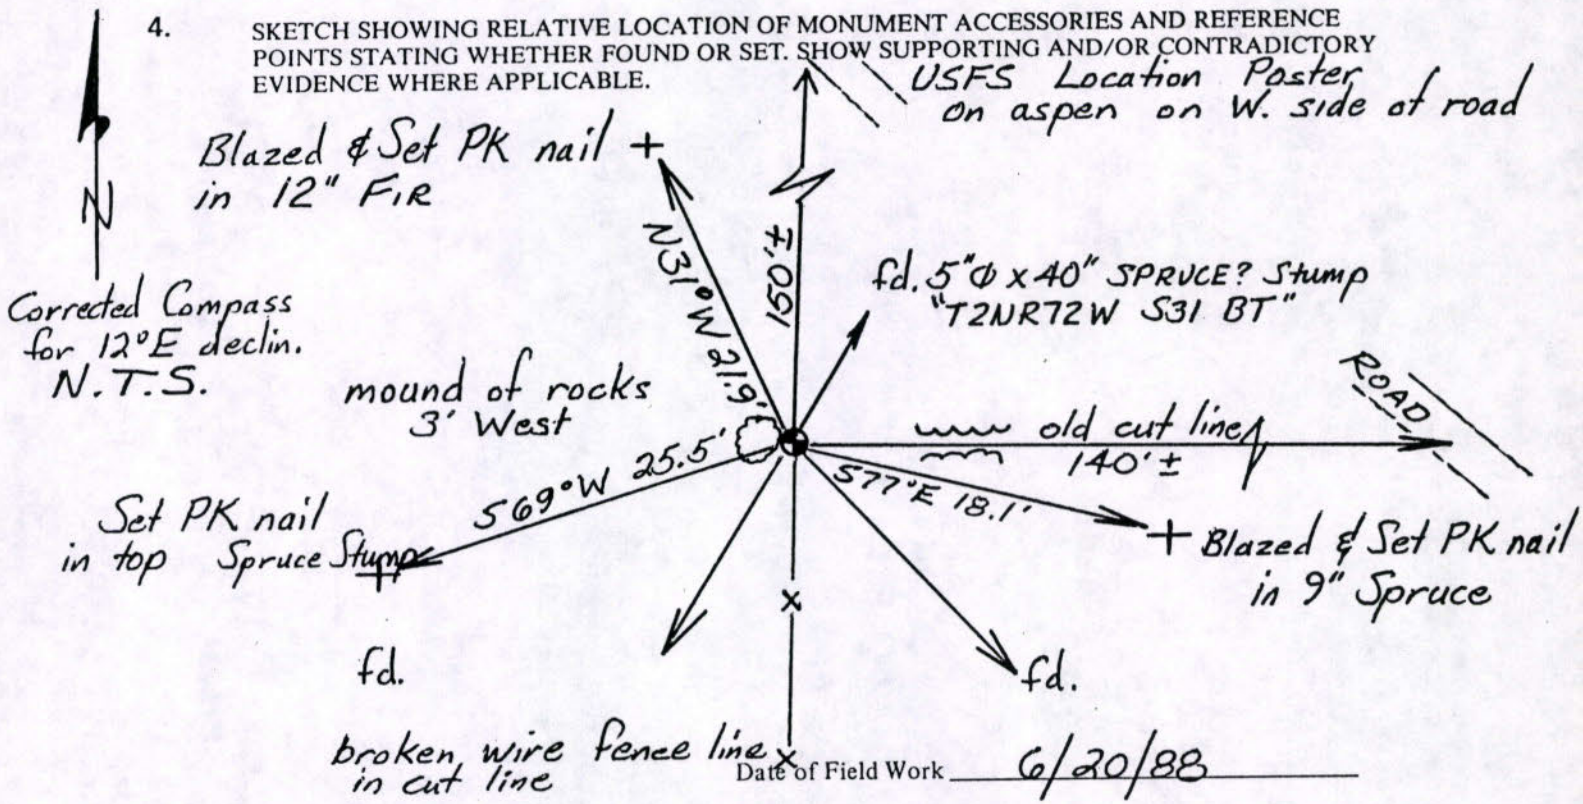 4. SKETCH SHOWING RELATIVE LOCATION OF MONUMENT ACCESSORIES AND REFERENCE
POINTS STATING WHETHER FOUND OR SET. SHOW SUPPORTING AND/OR CONTRADICTORY
EVIDENCE WHERE APPLICABLE.
USFS Location Poster
on aspen on W. side of road
Blazed & Set PK nail
in 12" FIR
N
Corrected Compass
for 12°E declin.
N.T.S.
N31°W 21.9'
150'±
fd. 5"Φ x 40" SPRUCE? Stump
"T2NR72W S31 BT"
mound of rocks
3' West
ROAD
old cut line
140'±
S69°W 25.5'
S77°E 18.1'
Set PK nail
in top Spruce Stump
Blazed & Set PK nail
in 9" Spruce
x
fd.
fd.
broken wire fence line x
in cut line
Date of Field Work 6/20/88